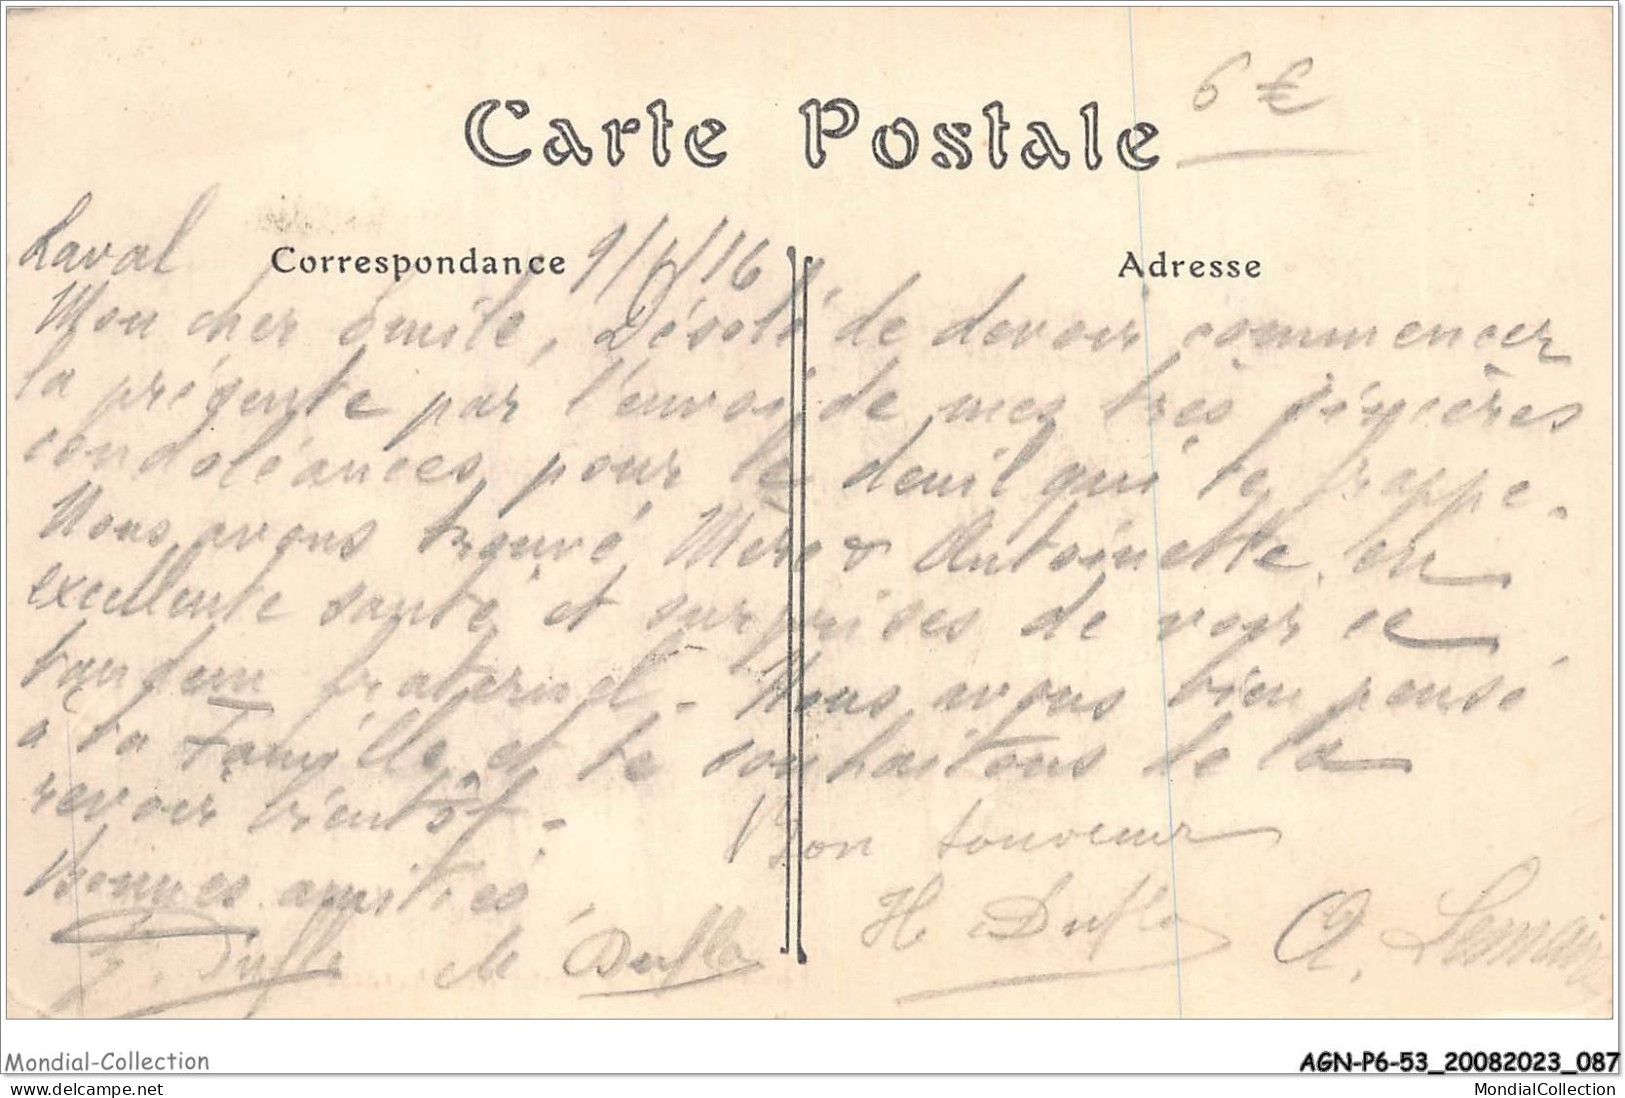 6 €
Carte Postale
Laval Correspondance 9/6/16 Adresse
Mon cher Emile, Désolé de devoir commencer
la présente par l'envoi de mes très sincères
condoléances pour le deuil qui te frappe.
Nous avons trouvé Mère & Antoinette en
excellente santé et surprises de voir ce
tandem fraternel - Nous avons bien pensé
à ta Famille et te souhaitons de la
revoir bientôt - Bon souvenir
Bonnes amitiés
Duflo M Duflo H Duflo A. Lemaire
Mondial-Collection AGN-P6-53_20082023_087
www.delcampe.net MondialCollection